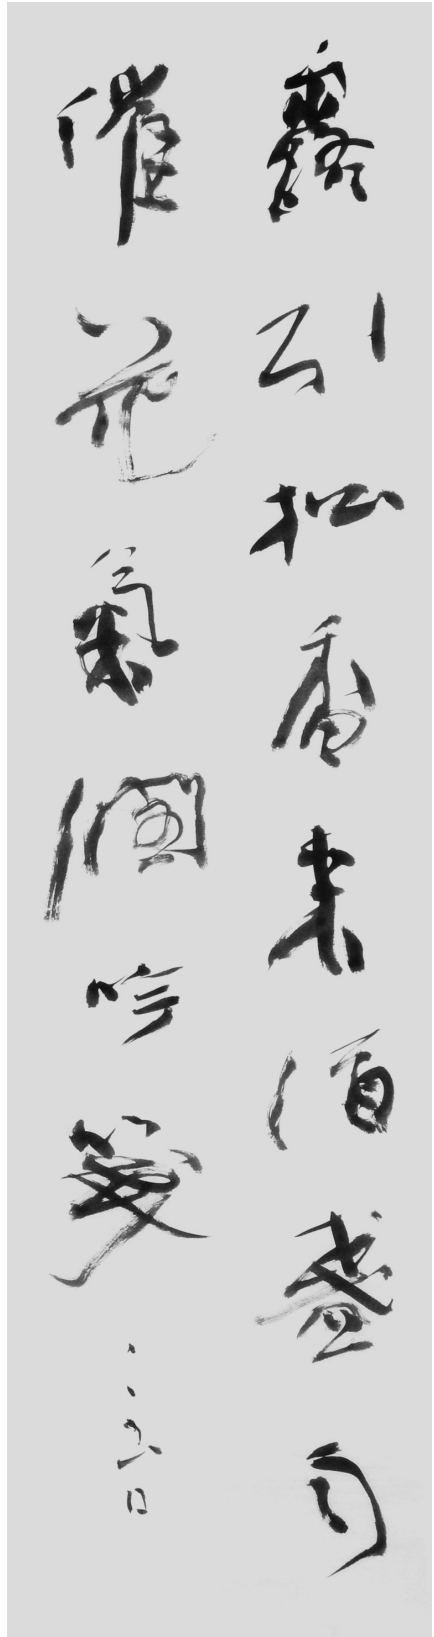 露引松香来酒盏雨
催花氣潤吟笺